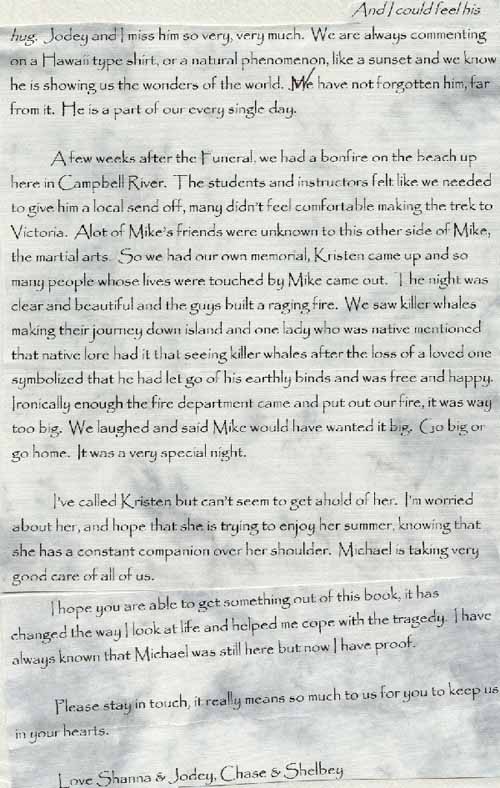 And I could feel his
hug. Jodey and I miss him so very, very much. We are always commenting
on a Hawaii type shirt, or a natural phenomenon, like a sunset and we know
he is showing us the wonders of the world. We have not forgotten him, far
from it. He is a part of our every single day.
A few weeks after the Funeral, we had a bonfire on the beach up
here in Campbell River. The students and instructors felt like we needed
to give him a local send off, many didn't feel comfortable making the trek to
Victoria. Alot of Mike's friends were unknown to this other side of Mike,
the martial arts. So we had our own memorial, Kristen came up and so
many people whose lives were touched by Mike came out. The night was
clear and beautiful and the guys built a raging fire. We saw killer whales
making their journey down island and one lady who was native mentioned
that native lore had it that seeing killer whales after the loss of a loved one
symbolized that he had let go of his earthly binds and was free and happy.
Ironically enough the fire department came and put out our fire, it was way
too big. We laughed and said Mike would have wanted it big. Go big or
go home. It was a very special night.
I've called Kristen but can't seem to get ahold of her. I'm worried
about her, and hope that she is trying to enjoy her summer, knowing that
she has a constant companion over her shoulder. Michael is taking very
good care of all of us.
I hope you are able to get something out of this book, it has
changed the way I look at life and helped me cope with the tragedy. I have
always known that Michael was still here but now I have proof.
Please stay in touch, it really means so much to us for you to keep us
in your hearts.
Love Shanna & Jodey, Chase & Shelbey